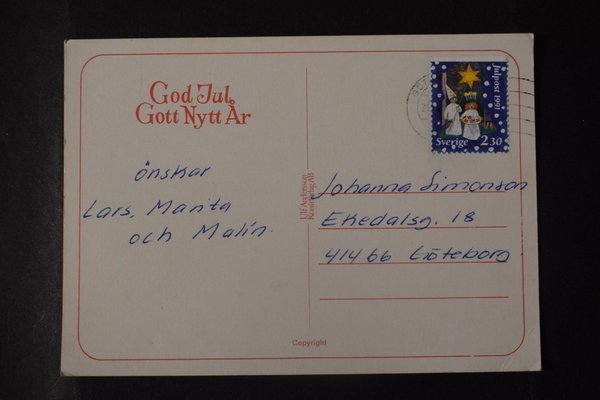 God Jul
Gott Nytt År
önskar
Lars, Marita
och Malin.
Ulf Andersson
Konstförlag AB
Julpost 1991
Sverige 2.30
Johanna Simonson
Ekedalsg. 18
41466 Göteborg.
Copyright